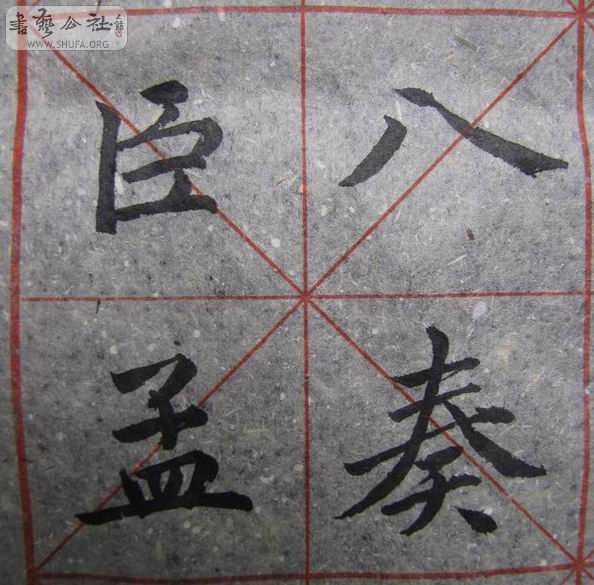 八奏
臣孟
書藝公社
WWW.SHUFA.ORG